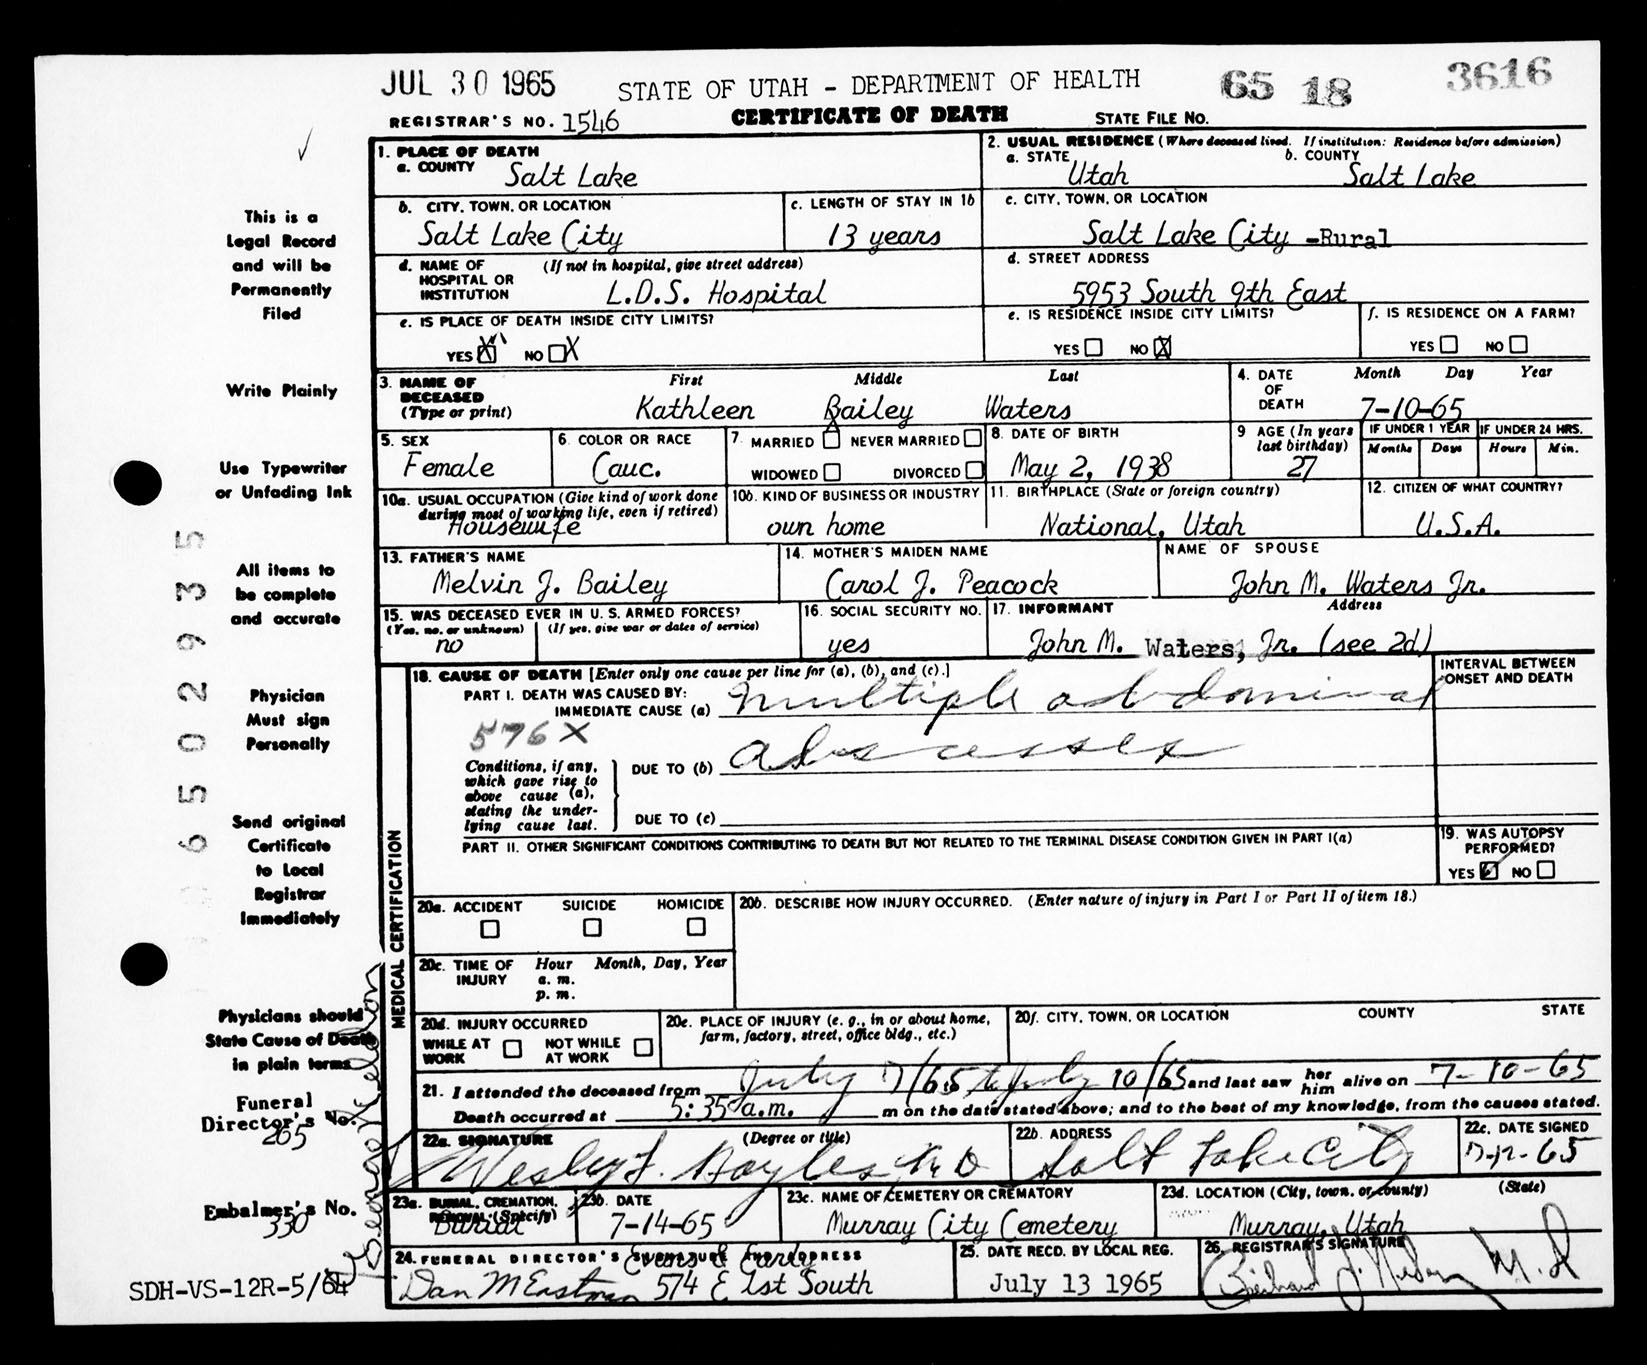 JUL 30 1965 STATE OF UTAH - DEPARTMENT OF HEALTH 65 18 3616
REGISTRAR'S NO. 1546 CERTIFICATE OF DEATH STATE FILE No.
1. PLACE OF DEATH
a. COUNTY Salt Lake
2. USUAL RESIDENCE (Where deceased lived. If institution: Residence before admission)
a. STATE Utah b. COUNTY Salt Lake
b. CITY, TOWN, OR LOCATION Salt Lake City
c. LENGTH OF STAY IN 1b 13 years
c. CITY, TOWN, OR LOCATION Salt Lake City -Rural
d. NAME OF HOSPITAL OR INSTITUTION (If not in hospital, give street address) L.D.S. Hospital
d. STREET ADDRESS 5953 South 9th East
e. IS PLACE OF DEATH INSIDE CITY LIMITS?
YES X NO X
e. IS RESIDENCE INSIDE CITY LIMITS?
YES NO X
f. IS RESIDENCE ON A FARM?
YES NO
3. NAME OF DECEASED (Type or print)
First Middle Last
Kathleen Bailey Waters
4. DATE OF DEATH Month Day Year
7-10-65
5. SEX Female
6. COLOR OR RACE Cauc.
7. MARRIED X NEVER MARRIED
WIDOWED DIVORCED
8. DATE OF BIRTH May 2, 1938
9 AGE (In years last birthday) 27
IF UNDER 1 YEAR Months Days
IF UNDER 24 HRS. Hours Min.
10a. USUAL OCCUPATION (Give kind of work done during most of working life, even if retired) Housewife
10b. KIND OF BUSINESS OR INDUSTRY own home
11. BIRTHPLACE (State or foreign country) National, Utah
12. CITIZEN OF WHAT COUNTRY? U.S.A.
13. FATHER'S NAME Melvin J. Bailey
14. MOTHER'S MAIDEN NAME Carol J. Peacock
NAME OF SPOUSE John M. Waters Jr.
15. WAS DECEASED EVER IN U.S. ARMED FORCES?
(Yes, no, or unknown) (If yes, give war or dates of service)
no
16. SOCIAL SECURITY NO. yes
17. INFORMANT Address
John M. Waters, Jr. (see 2d)
18. CAUSE OF DEATH [Enter only one cause per line for (a), (b), and (c).]
PART I. DEATH WAS CAUSED BY:
IMMEDIATE CAUSE (a) multiple abdominal
576X
Conditions, if any, which gave rise to above cause (a), stating the underlying cause last.
DUE TO (b) abscesses
DUE TO (c)
INTERVAL BETWEEN ONSET AND DEATH
PART II. OTHER SIGNIFICANT CONDITIONS CONTRIBUTING TO DEATH BUT NOT RELATED TO THE TERMINAL DISEASE CONDITION GIVEN IN PART I(a)
19. WAS AUTOPSY PERFORMED?
YES NO
MEDICAL CERTIFICATION
20a. ACCIDENT SUICIDE HOMICIDE
20b. DESCRIBE HOW INJURY OCCURRED. (Enter nature of injury in Part I or Part II of item 18.)
20c. TIME OF INJURY Hour Month, Day, Year
a. m.
p. m.
20d. INJURY OCCURRED
WHILE AT WORK NOT WHILE AT WORK
20e. PLACE OF INJURY (e. g., in or about home, farm, factory, street, office bldg., etc.)
20f. CITY, TOWN, OR LOCATION COUNTY STATE
21. I attended the deceased from July 7/65 to July 10/65 and last saw her him alive on 7-10-65
Death occurred at 5:35 a.m. m on the date stated above; and to the best of my knowledge, from the causes stated.
22a. SIGNATURE (Degree or title)
Wesley F. Bayles M D
22b. ADDRESS Salt Lake City
22c. DATE SIGNED 7-12-65
23a. BURIAL, CREMATION, REMOVAL (Specify) Burial
23b. DATE 7-14-65
23c. NAME OF CEMETERY OR CREMATORY Murray City Cemetery
23d. LOCATION (City, town, or county) (State)
Murray, Utah
24. FUNERAL DIRECTOR'S SIGNATURE AND ADDRESS
Evans & Early
Dan M Eastman 574 E 1st South
25. DATE RECD. BY LOCAL REG. July 13 1965
26. REGISTRAR'S SIGNATURE
M.D
This is a
Legal Record
and will be
Permanently
Filed
Write Plainly
Use Typewriter
or Unfading Ink
All items to
be complete
and accurate
Physician
Must sign
Personally
Send original
Certificate
to Local
Registrar
Immediately
Physicians should
State Cause of Death
in plain terms
Funeral
Director's No.
265
Embalmer's No.
330
SDH-VS-12R-5/64
6 5 0 2 9 3 5